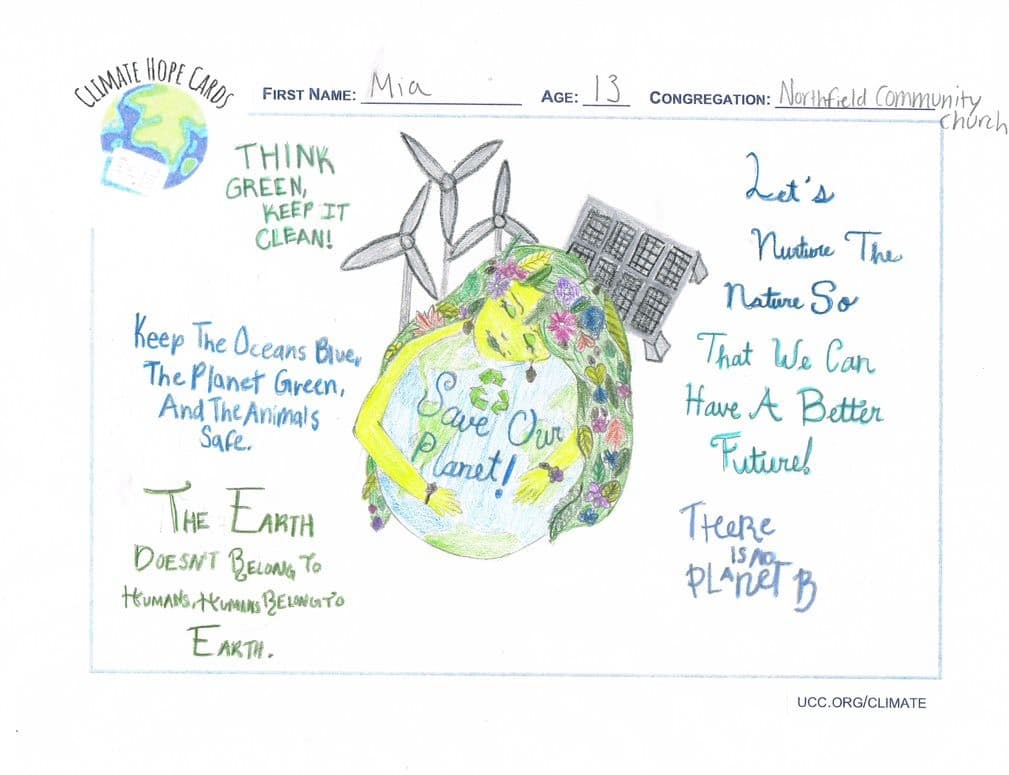 CLIMATE HOPE CARDS
FIRST NAME: Mia AGE: 13 CONGREGATION: Northfield Community
church
THINK
GREEN,
KEEP IT
CLEAN!
Keep The Oceans Blue,
The Planet Green,
And The Animals
Safe.
THE EARTH
DOESN'T BELONG TO
HUMANS, HUMANS BELONG TO
EARTH.
Save Our
Planet!
Let's
Nurture The
Nature So
That We Can
Have A Better
Future!
THERE
IS NO
PLANET B
UCC.ORG/CLIMATE